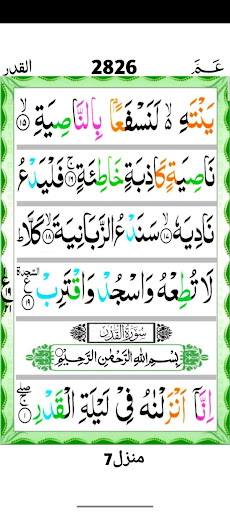 القدر 2826 عٓمّ
يَنْتَهِ ۙ۬ لَنَسْفَعًۢا بِالنَّاصِيَةِ ۝۱۵
نَاصِيَةٍ كَاذِبَةٍ خَاطِئَةٍ ۚ۝۱۶ فَلْيَدْعُ
نَادِيَهٗ ۝۱۷ سَنَدْعُ الزَّبَانِيَةَ ۝۱۸ كَلَّا ؕ
لَا تُطِعْهُ وَاسْجُدْ وَاقْتَرِبْ ۝۱۹ السجدة ع
سُوْرَةُ الْقَدْرِ
بِسْمِ اللّٰهِ الرَّحْمٰنِ الرَّحِيْمِ
اِنَّاۤ اَنْزَلْنٰهُ فِيْ لَيْلَةِ الْقَدْرِ ۝۱ ۖۚ
منزل7